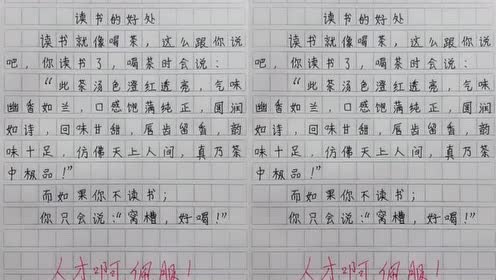 读书的好处
读书就像喝茶，这么跟你说
吧，你读书了，喝茶时会说：
“此茶汤色澄红透亮，气味
幽香如兰，口感饱满纯正，圆润
如诗，回味甘甜，唇齿留香，韵
味十足，仿佛天上人间，真乃茶
中极品！”
而如果你不读书；
你只会说：“窝槽，好喝！”
人才啊佩服！
读书的好处
读书就像喝茶，这么跟你说
吧，你读书了，喝茶时会说：
“此茶汤色澄红透亮，气味
幽香如兰，口感饱满纯正，圆润
如诗，回味甘甜，唇齿留香，韵
味十足，仿佛天上人间，真乃茶
中极品！”
而如果你不读书；
你只会说：“窝槽，好喝！”
人才啊佩服！